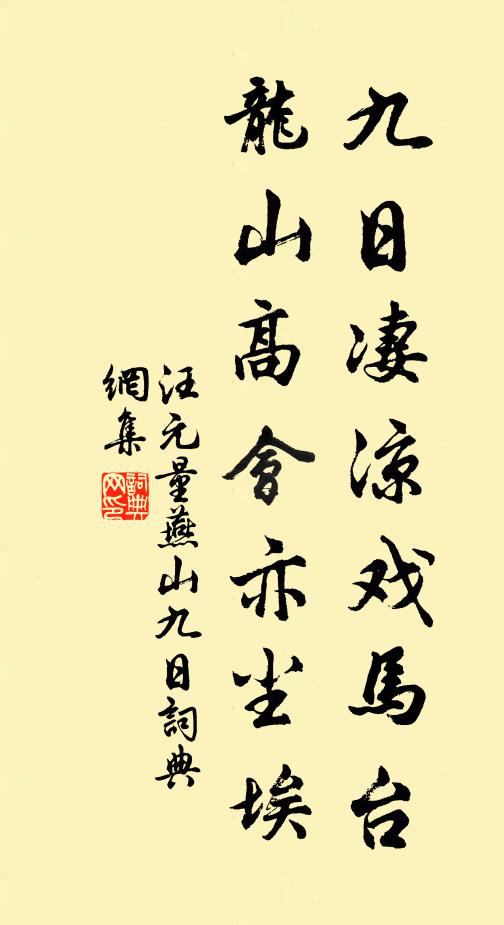 九日凄涼戏馬台
龍山高會亦尘埃
汪元量燕山九日詞典
網集
詞典網印